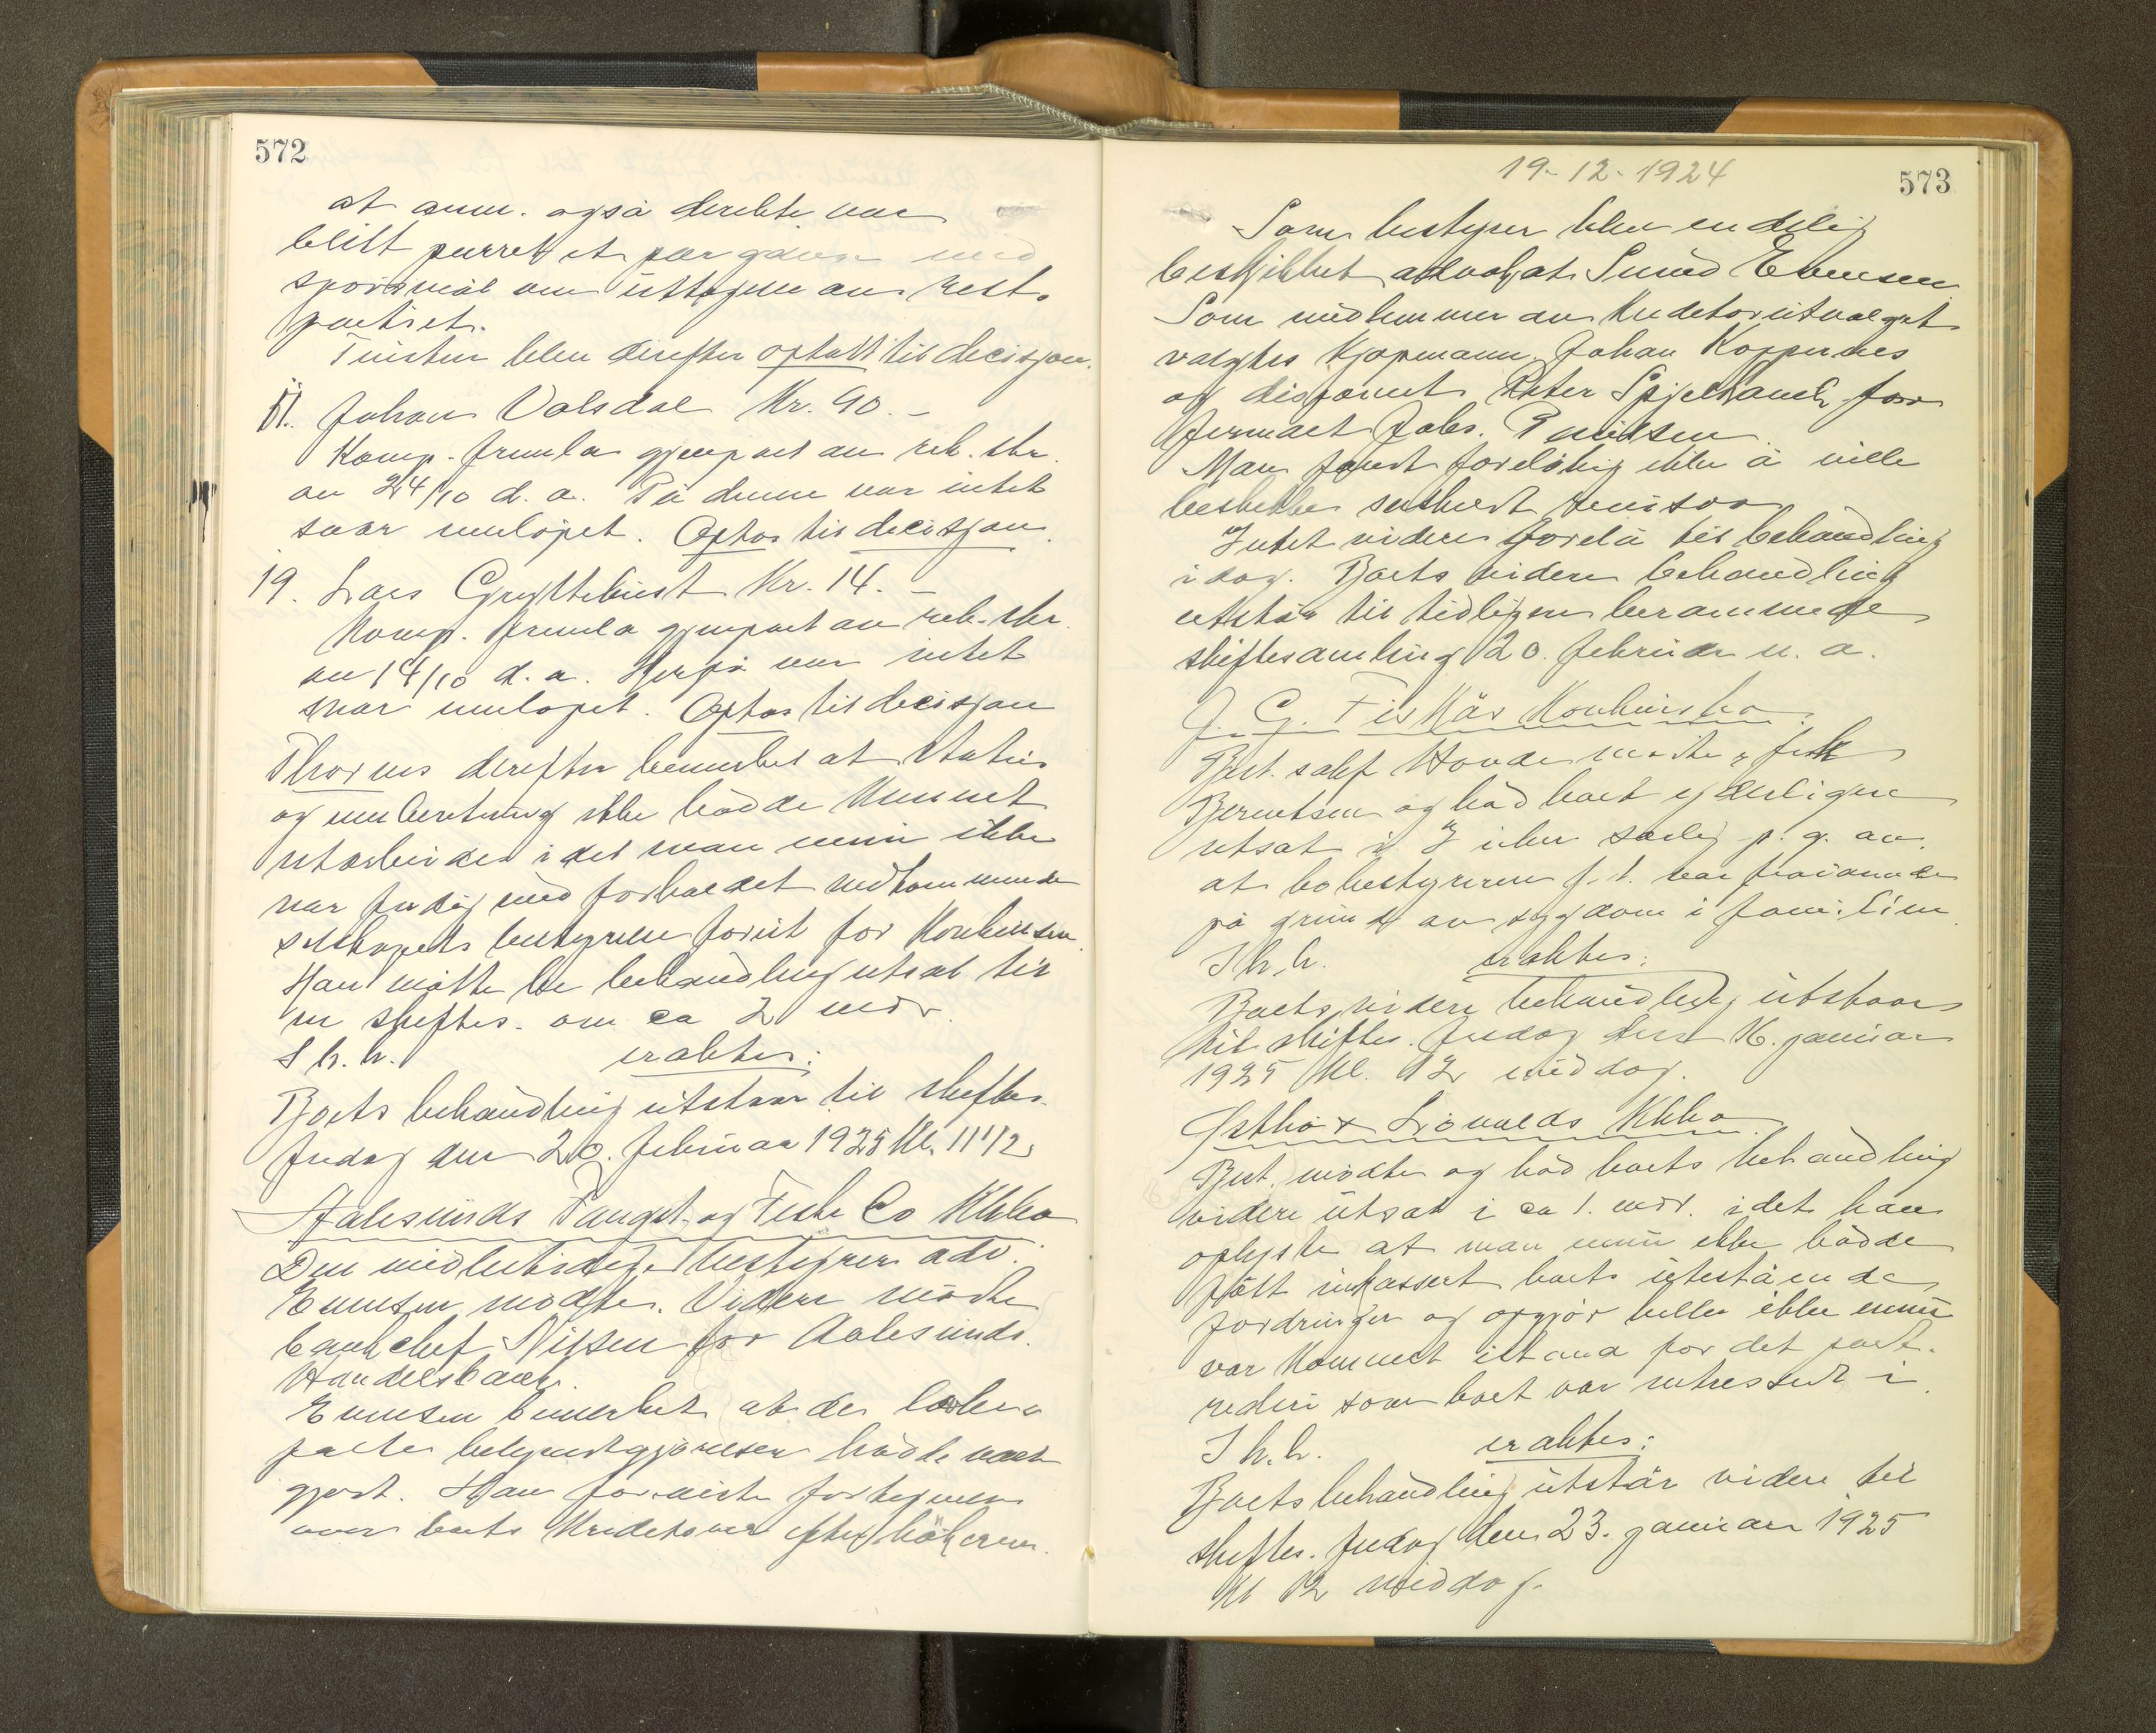 572
at anm. også direkte var
blitt purret et par ganger med
spørsmål om uttagelse av rest.
partiet.
Tvisten blev derefter optatt til decisjon.
Johan Valsdal Kr. 90.-
Komp. fremla gjenpart av rek. skr.
av 24/10 d. a. På denne var intet
svar innløpet. Optas til decisjon.
19. Lars Gryttebust Kr. 14.-
Komp. fremla gjenpart av rek. skr.
av 14/10 d. a. Herpå var intet
svar innløpet. Optas til decisjon
derefter bemerket at status
og innberetning ikke hadde kunnet
utarbeides idet man ennu ikke
var ferdig med forholdet vedkommende
selskapets bestyrelse forut for konkursen.
Han måtte be behandling utsat til
ny skiftes. om ca 2 mdr.
S. h. h. eraktes:
Boets behandling utstaar til skiftes.
fredag den 20. februar 1925 kl. 11 1/2
Aalesunds Fangst- og Fiske Co Kkbo
Den midlertidige bestyrer adv.
Evensen mødte. Videre mødte
bankchef Nilsen for Aalesunds
Handelsbank.
Evensen bemerket at de lovbe-
falte bekjentgjørelser hadde vært
gjort. Han foreviste fortegnelse
over boets kreditorer efter bøkerne.
19-12-1924
573
Som bestyrer blev endelig
beskikket advokat Sunde Evensen
Som medlemmer av kreditorutvalget
valgtes kjøpmann Johan Koppernes
og disponent Peter Spjelkavik for
firmaet Jabs.
Man fant foreløbig ikke å ville
beskikke særskilt revisor
Intet videre forelå til behandling
idag. Boets videre behandling
utstår til tidligere berammede
skiftesamling 20. februar n. a.
J. G. Fiskås Konkursbo.
Best. sakf. Hovde mødte v. fuldm.
Berntsen og bad boet yderligere
utsat i uker særlig p. g. av.
at bobestyreren f. t. var fraværende
på grund av sygdom i familien.
S. h. h. eraktes:
Boets videre behandling utstaar
til skiftes. fredag den 16. januar
1925 kl. 12 middag.
& Kkbo
Best. mødte og bad boets behandling
videre utsat i ca 1. mdr. idet han
oplyste at man ennu ikke hadde
fått inkassert boets utestående
fordringer og opgjør heller ikke ennu
var kommet istand for det part-
rederi som boet var interessert i.
S. h. h. eraktes:
Boets behandling utstår videre til
skiftes. fredag den 23. januar 1925
kl 12 middag.